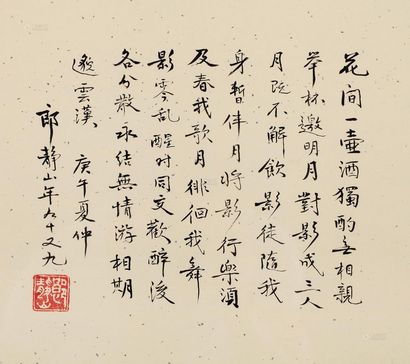 花间一壶酒獨酌無相親
举杯邀明月對影成三人
月既不解飲影徒隨我
身暫伴月將影行樂須
及春我歌月徘徊我舞
影零乱醒时同交歡醉後
各分散永结無情游相期
邈雲漢 庚午夏仲
郎静山年九十又九
郎静山